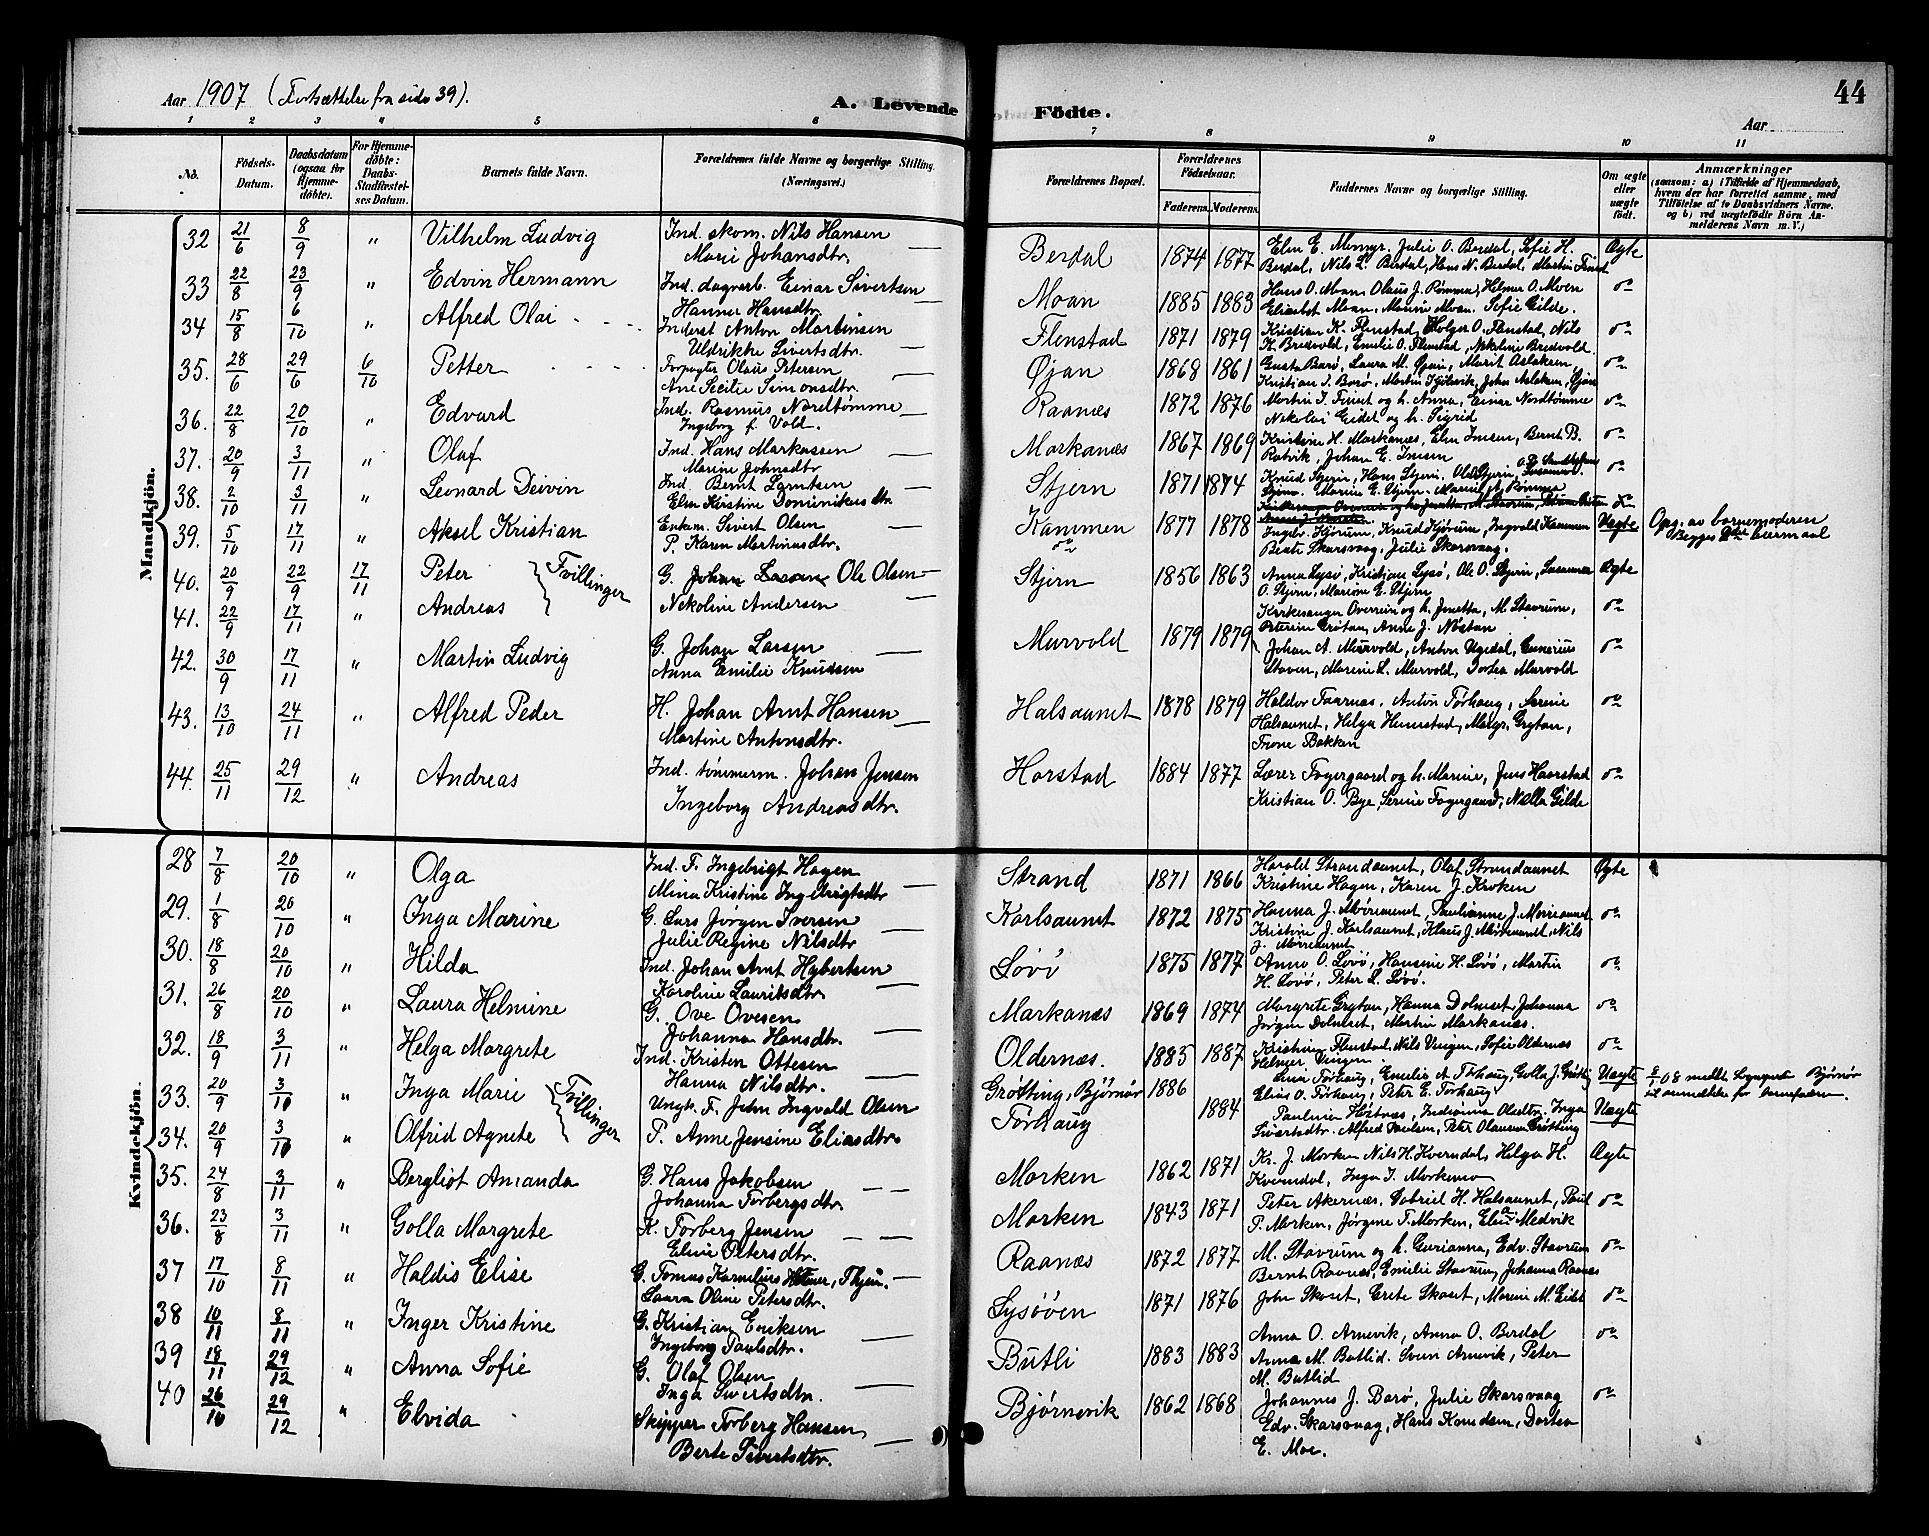 Aar 1907 (Fortsættelse fra side 39).
A. Levende Födte.
44
Aar
1 2 3 4 5 6 7 8 9 10 11
No.
Födsels-Datum.
Daabsdatum (ogsaa for Hjemme-döbte).
For Hjemme-döbte: Daabs-Stadfæstel-ses Datum.
Barnets fulde Navn.
Forældrenes fulde Navne og borgerlige Stilling. (Næringsvei.)
Forældrenes Bopæl.
Forældrenes Födselsaar.
Faderens. Moderens.
Faddernes Navne og borgerlige Stilling.
Om ægte eller uægte födt.
Anmærkninger
(saasom: a) i Tilfælde af Hjemmedaab, hvem der har forrettet samme, med Tilföielse af to Daabsvidners Navne. og b) ved uægtefödte Börn Anmelderens Navn m. V.)
Mandkjön.
32 21/6 8/9 " Vilhelm Ludvig Ind. skom. Nils Hansen Berdal 1874 1877 Elen E. Memyr, Julie O. Berdal, Sofie H. Ægte
Marie Johansdtr. Berdal, Nils L. Berdal, Hans N. Berdal, Martin Finst
33 22/8 23/9 " Edvin Hermann Ind. dagarb. Einar Sivertsen Moan 1885 1883 Hans O. Moan, Olaus J. Rømma, Helmer O. Moen do
Hanner Hansdtr. Elisabet Moan, Marine Moan, Sofie Gilde.
34 15/8 6/10 " Alfred Olai Inderst Anton Martinsen Flenstad 1871 1879 Kristian K. Flenstad, Holger O. Flenstad, Nils do
Uldrikke Sivertsdtr. K. Bredvold, Emilie O. Flenstad, Nekoline Bredvold.
35. 28/6 29/6 6/10 Petter Forpagter Olaus Petersen Øjan 1868 1861 Gusta Barø, Laura M. Øjan, Marit Aslaksen, do
Ane Secilie Simonsdtr. Kristian I. Borø, Martin Kjølsvik, John Aslaksen, Øjan
36. 22/8 20/10 " Edvard Ind. Rasmus Nordtømme Raanæs 1872 1876 Martin I. Finst og h. Anna, Einar Nordtømme do
Ingeborg f. Vold. Nekolai Eidet og h. Sigrid
37. 20/9 3/11 " Olaf Ind. Hans Markussen Markanæs 1867 1869 Kristine H. Markanæs, Elen Imsen, Bernt B. do
Marine Johnsdtr Ratvik, Johan E. Imsen
38. 2/10 3/11 " Leonard Deivin Ind. Bernt Larntsen Stjern 1871 1874 Knud Stjern, Hans Stjern, Ole Stjern, do
Elen Kirstine Dominikusdtr Stjern, Marine E. Stjern, Rømma
39. 5/10 17/11 " Aksel Kristian Enkem. Sivert Olsen Kammen 1877 1878 Ingebr. Hjørum, Knud Hjørum, Ingvald Kammen Uægte Opg. av barnemoderen
P. Karen Martinusdtr. do Beate Skarsvaag, Julie Skarsvaag. Begges 2det leiermaal
40. 20/9 22/9 17/11 Peter Tvillinger G. Johan Larsen Ole Olsen Stjern 1856 1863 Anna Lysø, Kristian Lysø, Ole O. Stjern, Susanna Ægte
O. Stjern, Marion E. Stjern
41. 22/9 17/11 " Andreas Nekoline Andersen Kirkesanger Overrein og h. Jenetta, M. Stavrum, do
Peterine Grøtan, Anne J. Nøstan
42. 30/9 17/11 " Martin Ludvig G. Johan Larsen Murvold 1879 1879 Johan A. Murvold, Anton Ugedal, Gunerius do
Anna Emilie Knudsen Staven, Mareni L. Murvold, Dortea Murvold
43. 13/10 24/11 " Alfred Peder H. Johan Arnt Hansen Halsaunet 1878 1879 Haldor Faarnæs, Anton Tørhaug, Serine do
Martine Antonsdtr. Halsaunet, Helga Hennstad, Margr. Grytan,
Trone Bakken
44. 25/11 29/12 " Andreas Ind. tømmerm. Johan Jensen Horstad 1884 1877 Lærer Fagergaard og h. Marine, Jens Haarstad do
Ingeborg Andreasdtr. Kristian O. Bye, Serine Fagergaard, Nella Gilde
Kvindekjön.
28 7/8 20/10 " Olga Ind. F. Ingebrigt Hagen Strand 1871 1866 Harald Strandaunet, Olaf Strandaunet Ægte
Mina Kristine Ingebrigtsdtr Kristine Hagen, Karen J. Kroken
29. 1/8 20/10 " Inga Marine G. Lars Jørgen Iversen Karlsaunet 1872 1875 Hanna J. Mørreaunet, Paulianne J. Mørreaunet do
Julie Regine Nilsdtr Kristine J. Karlsaunet, Klaus J. Mørreaunet, Nils
J. Mørreaunet
30. 18/8 20/10 " Hilda Ind. Johan Arnt Hybertsen Løvø 1875 1877 Anna O. Løvø, Hansine H. Løvø, Martin do
Karoline Lauritsdtr. H. Løvø, Peter L. Løvø.
31. 26/8 20/10 " Laura Helmine G. Ove Ovesen Markanæs 1869 1874 Margrete Grytan, Hanna Dolmset, Johanna do
Johanna Hansdtr. Jørgen Dolmset, Martin Markanæs.
32. 18/9 3/11 " Helga Margrete Ind. Kristen Ottesen Oldernæs. 1885 1887 Kristine Flenstad, Nils Vingen, Sofie Oldernæs do
Hanna Nilsdtr. Helmer Vingen
33. 20/9 3/10 " Inga Marie Tvillinger Ungk. F. John Ingvald Olsen Grøtting, Bjørnør 1886 Tørhaug, Emilie A. Tørhaug, Golla J. Grøtting Uægte 8/1 08 meldt Sogneprest Bjørnør
Elias O. Tørhaug, Peter E. Tørhaug. til anmeldelse for barnefaderen.
34. 20/9 3/10 " Olfrid Agnete P. Anne Jensine Eliasdtr. Tørhaug 1884 Pauline Hestnæs, Indianna Olsdtr. Inga Uægte
Sivertsdtr. Alfred Paulsen, Peter Olausen Grøtting
35. 24/8 3/11 " Bergliot Amanda G. Hans Jakobsen Morken 1862 1871 Kr. J. Morken Nils H. Kverndal, Helga H. Ægte
Johanna Torbergsdtr. Kverndal, Inga I. Morkemo
36. 23/8 3/11 " Golla Margrete K. Torberg Jensen Morken 1843 1871 Peter Akernæs, Gabriel H. Halsaunet, Paul do
Eline Petersdtr. P. Morken, Jørgine T. Morken, Elen Medvik
37 17/10 8/11 " Haldis Elise G. Tomas Kornelius Thjem. Raanæs 1872 1877 M. Stavrum og h. Gurianna, Edv. Stavrum do
Laura Oline Petersdtr. Bernt Ravnæs, Emilie Stavrum, Johanna Raanæs
38 10/11 8/11 " Inger Kristine G. Kristian Eriksen Lysøøen 1871 1876 John Skaset, Grete Skaset, Mareni M. Eidet do
Ingeborg Paulsdtr.
39 18/11 29/12 " Anna Sofie G. Olaf Olsen Butli 1883 1883 Anna O. Arnevik, Anna O. Berdal do
Inga Sivertsdtr. Anna M. Butlid. Sven Arnevik, Peter
M. Butlid
40 26/10 29/12 " Elvida Skipper Torberg Hansen Bjørnevik 1862 1868 Johannes J. Barø, Julie Skarsvaag do
Berte Sivertsdtr. Edv. Skarsvaag, Hans Knudsen, Dortea
E. Moe.